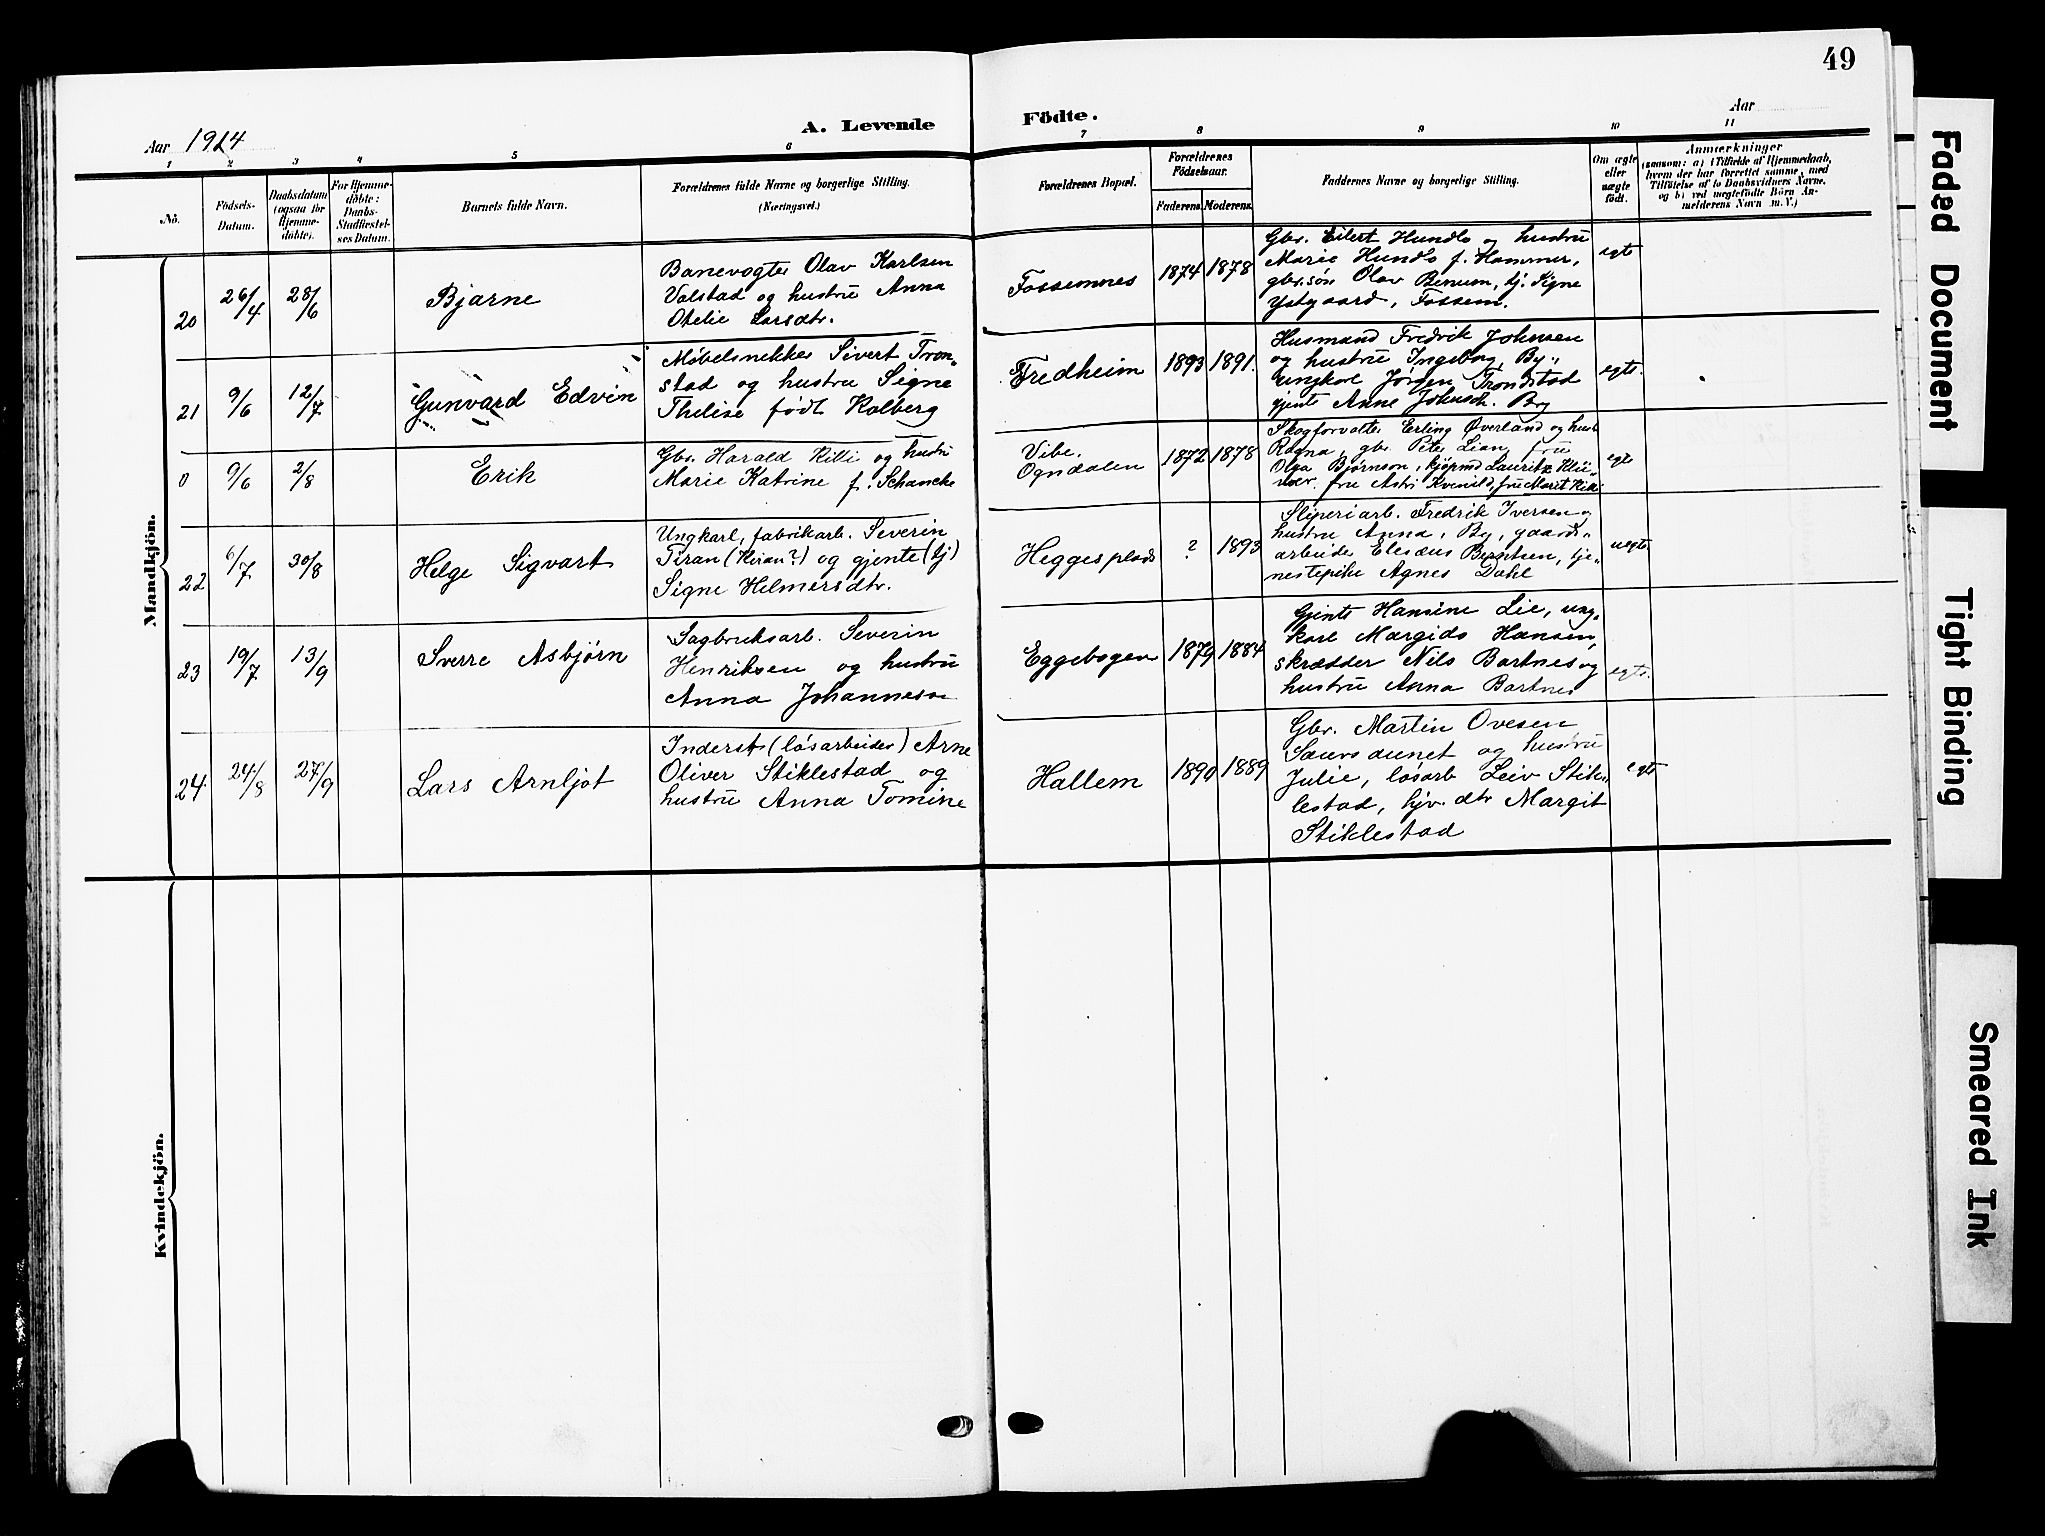 49
Aar 1914
A. Levende
Födte.
Aar
1 2 3 4 5 6 7 8 9 10 11
No.
Födsels-
Datum.
Daabsdatum
(ogsaa for
Hjemme-
döbte).
For Hjemme-
döbte:
Daabs-
Stadfæstel-
ses Datum.
Barnets fulde Navn.
Forældrenes fulde Navne og borgerlige Stilling.
(Næringsvei.)
Forældrenes Bopæl.
Forældrenes
Födselsaar.
Faderens. Moderens.
Faddernes Navne og borgerlige Stilling.
Om ægte
eller
uægte
födt.
Anmærkninger
(saasom: a) i Tilfælde af Hjemmedaab,
hvem der har forrettet samme, med
Tilföielse af to Daabsvidners Navne,
og b) ved uægtefödte Börn An-
melderens Navn m. V.)
Mandkjön.
20
26/4
28/6
Bjarne
Banevogter Olav Karlsen
Valstad og hustru Anna
Otelie Larsdtr.
Fossemnes
1874
1878
Gbr. Eilert Hundlo og hustru
Marie Hundlo f. Hammer,
gbr.søn Olav Benum, tj. Signe
Ystgaard, Fossem.
egte
21
9/6
12/7
Gunvard Edvin
Møbelsnekker Sivert Tron-
stad og hustru Signe
Thelise født Kolberg
Fredheim
1893
1891.
Husmand Fredrik Johnsen
og hustru Ingeborg, By,
ungkarl Jørgen Trondstad
gjente Anne Johnsdt. By
egte.
0
9/6
2/8
Erik
Gbr. Harald Killi og hustru
Marie Katrine f. Schancke
Vibe.
Ogndalen
1872
1878
Skogforvalter Erling Øverland og hust.
Ragna, gbr. Peter Lian, fru
Olga Bjørnson, kjøpmd Lauritz Klü-
wer. fru Astri Kvenild, fru Marit Killi
egte
22
6/7
30/8
Helge Sigvart
Ungkarl, fabrikarb. Severin
Tiran (Kiran?) og gjente (tj)
Signe Helmersdtr.
Heggesplads
?
1893
Sliperiarb. Fredrik Iversen og
hustru Anna, By, gaards-
arbeider Elesæus Berntsen, tje-
nestepike Agnes Dahl
uegte.
23
19/7
13/9
Sverre Asbjørn
Sagbruksarb. Severin
Henriksen og hustru
Anna Johannesen
Eggebogen
1879
1884
Gjente Hansine Lie, ung-
karl Margido Hansen,
skrædder Nils Bartnes og
hustru Anna Bartnes
egte.
24.
24/8
27/9
Lars Arnljot
Inderst (løsarbeider) Arne
Oliver Stiklestad og
hustru Anna Tomine
Hallem
1890
1889
Gbr. Martin Ovesen
Saursaunet og hustru
Julie, løsarb Leiv Stik-
lestad, hjv. dtr Margit
Stiklestad
egte
Kvindekjön.
Faded Document
Tight Binding
Smeared Ink